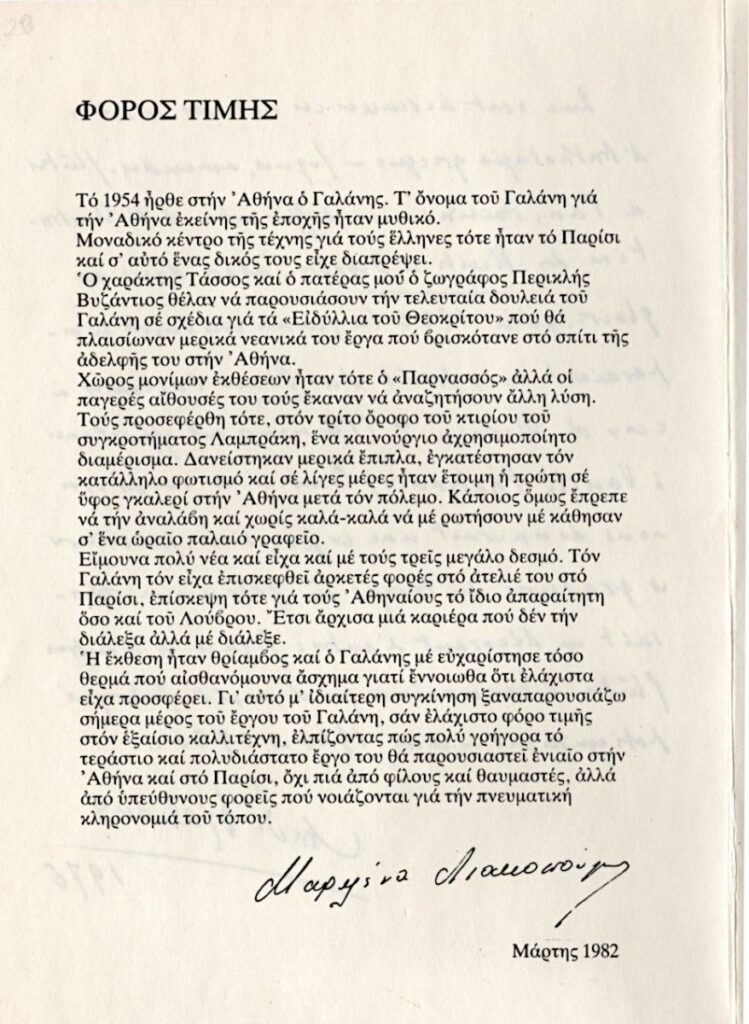 ΦΟΡΟΣ ΤΙΜΗΣ
Τό 1954 ἦρθε στήν Ἀθήνα ὁ Γαλάνης. Τ' ὄνομα τοῦ Γαλάνη γιά
τήν Ἀθήνα ἐκείνης τῆς ἐποχῆς ἦταν μυθικό.
Μοναδικό κέντρο τῆς τέχνης γιά τούς ἕλληνες τότε ἦταν τό Παρίσι
καί σ' αὐτό ἕνας δικός τους εἶχε διαπρέψει.
Ὁ χαράκτης Τάσσος καί ὁ πατέρας μού ὁ ζωγράφος Περικλής
Βυζάντιος θέλαν νά παρουσιάσουν τήν τελευταία δουλειά τοῦ
Γαλάνη σέ σχέδια γιά τά «Εἰδύλλια τοῦ Θεοκρίτου» πού θά
πλαισίωναν μερικά νεανικά του ἔργα πού βρισκότανε στό σπίτι τῆς
ἀδελφῆς του στήν Ἀθήνα.
Χῶρος μονίμων ἐκθέσεων ἦταν τότε ὁ «Παρνασσός» ἀλλά οἱ
παγερές αἴθουσές του τούς ἔκαναν νά ἀναζητήσουν ἄλλη λύση.
Τούς προσεφέρθη τότε, στόν τρίτο ὄροφο τοῦ κτιρίου τοῦ
συγκροτήματος Λαμπράκη, ἕνα καινούργιο ἀχρησιμοποίητο
διαμέρισμα. Δανείστηκαν μερικά ἔπιπλα, ἐγκατέστησαν τόν
κατάλληλο φωτισμό καί σέ λίγες μέρες ἦταν ἕτοιμη ἡ πρώτη σέ
ὕφος γκαλερί στήν Ἀθήνα μετά τόν πόλεμο. Κάποιος ὅμως ἔπρεπε
νά τήν ἀναλάβη καί χωρίς καλά-καλά νά μέ ρωτήσουν μέ κάθησαν
σ' ἕνα ὡραῖο παλαιό γραφεῖο.
Εἴμουνα πολύ νέα καί εἶχα καί μέ τούς τρεῖς μεγάλο δεσμό. Τόν
Γαλάνη τόν εἶχα ἐπισκεφθεῖ ἀρκετές φορές στό ἀτελιέ του στό
Παρίσι, ἐπίσκεψη τότε γιά τούς Ἀθηναίους τό ἴδιο ἀπαραίτητη
ὅσο καί τοῦ Λούβρου. Ἔτσι ἄρχισα μιά καριέρα πού δέν τήν
διάλεξα ἀλλά μέ διάλεξε.
Ἡ ἔκθεση ἦταν θρίαμβος καί ὁ Γαλάνης μέ εὐχαρίστησε τόσο
θερμά πού αἰσθανόμουνα ἄσχημα γιατί ἔννοιωθα ὅτι ἐλάχιστα
εἶχα προσφέρει. Γι' αὐτό μ' ἰδιαίτερη συγκίνηση ξαναπαρουσιάζω
σήμερα μέρος τοῦ ἔργου τοῦ Γαλάνη, σάν ἐλάχιστο φόρο τιμῆς
στόν ἐξαίσιο καλλιτέχνη, ἐλπίζοντας πώς πολύ γρήγορα τό
τεράστιο καί πολυδιάστατο ἔργο του θά παρουσιαστεῖ ἑνιαῖο στήν
Ἀθήνα καί στό Παρίσι, ὄχι πιά ἀπό φίλους καί θαυμαστές, ἀλλά
ἀπό ὑπεύθυνους φορεῖς πού νοιάζονται γιά τήν πνευματική
κληρονομιά τοῦ τόπου.
Μαριλένα Λιακοπούλου
Μάρτης 1982